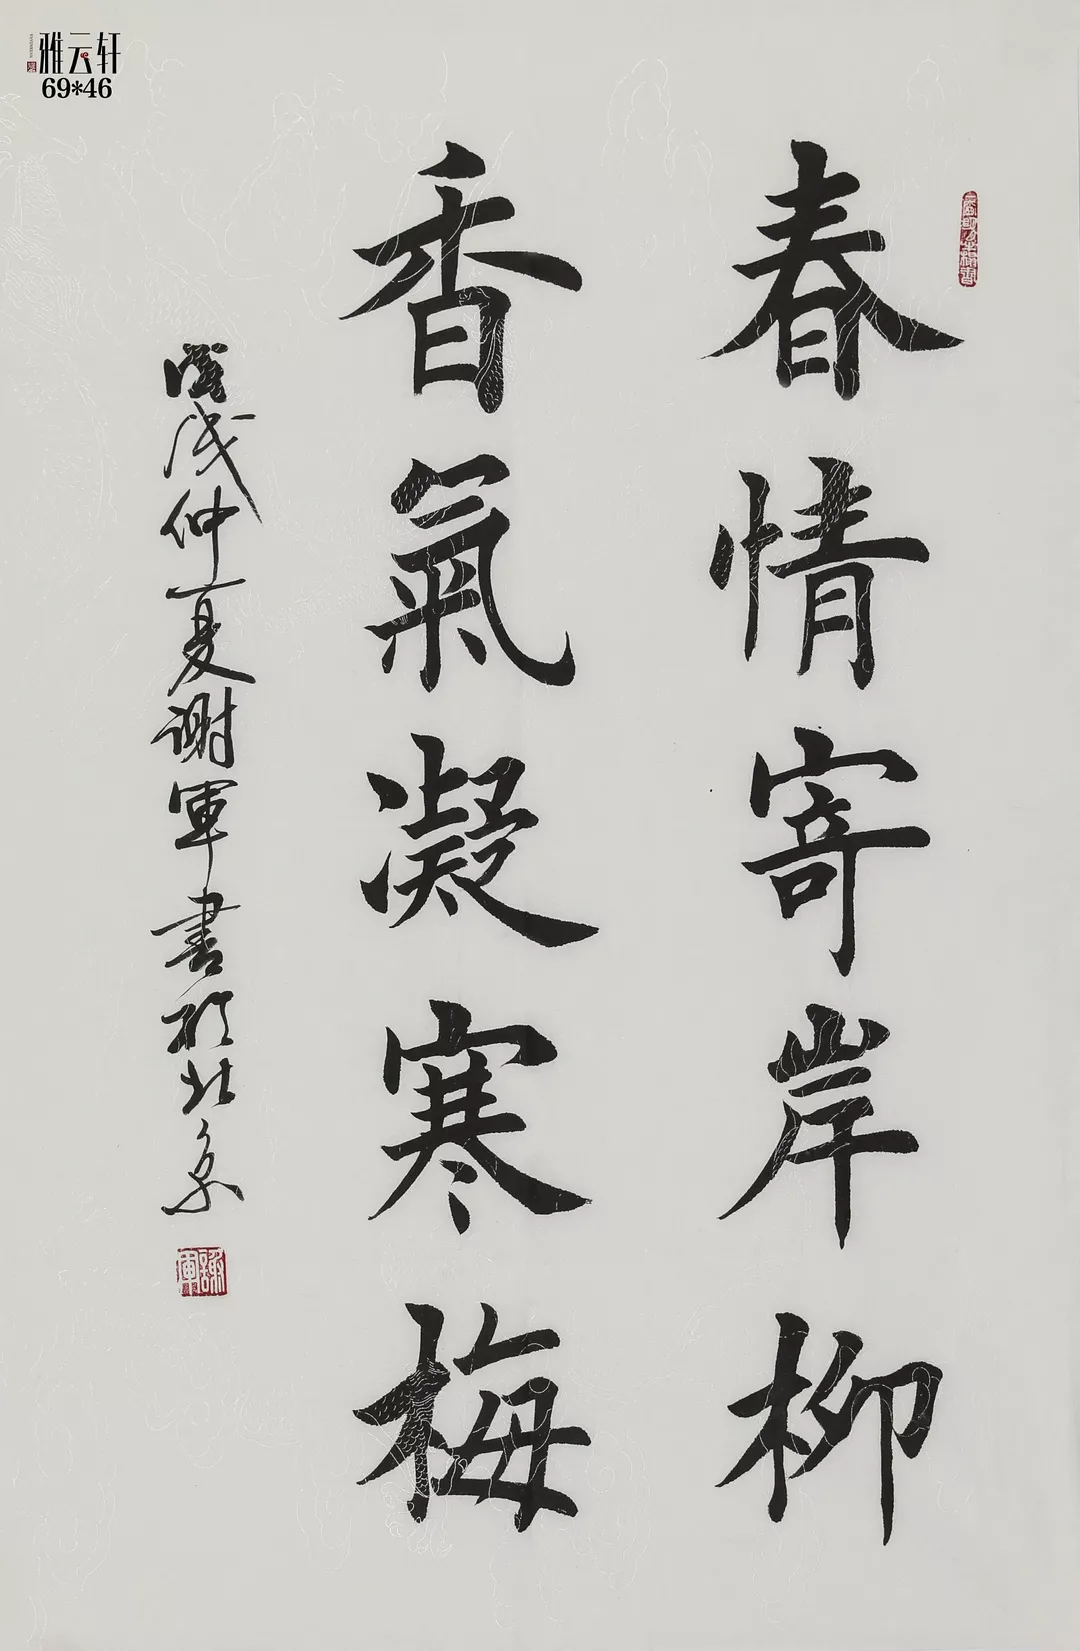 雅云轩
69*46
春情寄岸柳
香氣凝寒梅
戊戌仲夏谢軍書於北京
謝軍